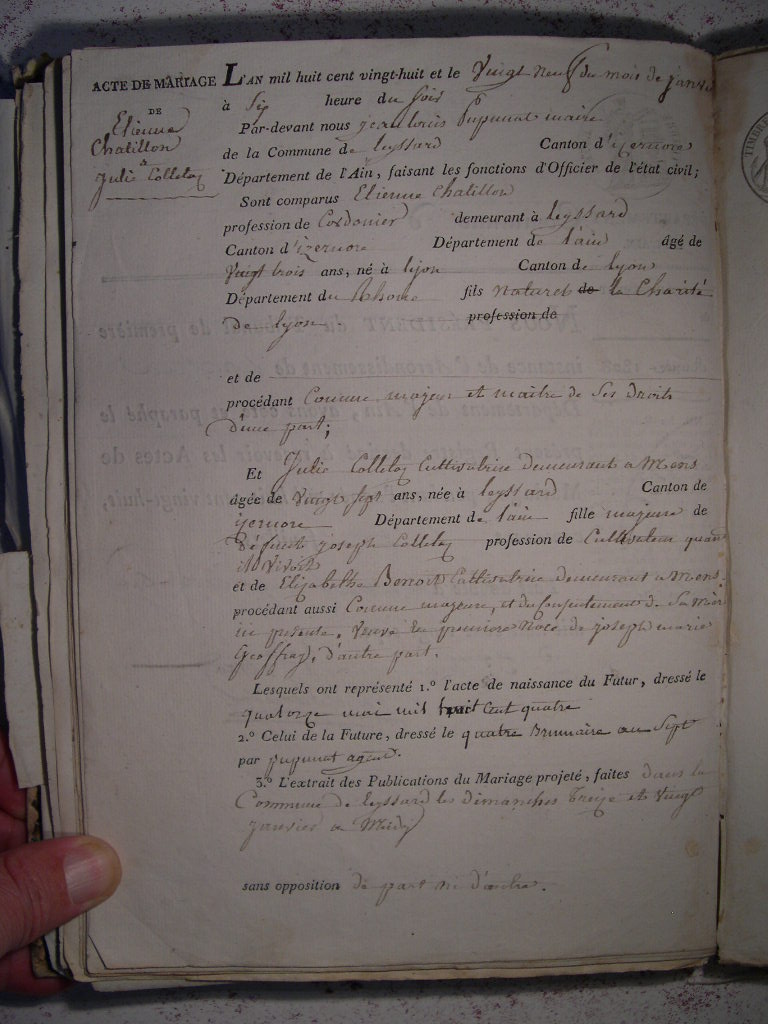 ACTE DE MARIAGE
DE
Etienne
Chatillon
&
Julie Colletaz
L'AN mil huit cent vingt-huit et le Vingt neuf du mois de janvier
à Six heure du soir
Par-devant nous jean louis pupunat maire
de la Commune de leyssard Canton d'izernore
Département de l'Ain, faisant les fonctions d'Officier de l'état civil;
Sont comparus Etienne Chatillon
profession de Cordonier demeurant à leyssard
Canton d'izernore Département de l'ain âgé de
Vingt trois ans, né à lyon Canton de lyon
Département du Rhone fils naturel de la Charité
de lyon profession de
et de
procédant Comme majeur et maitre de Ses droits
d'une part;
Et Julie Colletaz Cultivatrice demeurant a Mens
âgée de Vingt Sept ans, née à leyssard Canton de
izernore Département de l'ain fille majeure de
Défunt joseph Colletaz profession de Cultivateur quand
il Vivoit
et de Elizabethe Benoit Cultivatrice demeurant a Mens.
procédant aussi Comme majeure, et du Consentement de Sa Mère
ici présente, Veuve en premiere Noce de joseph marie
Geoffray, d'autre part.
Lesquels ont représenté 1.º l'acte de naissance du Futur, dressé le
quatorze mai mil huit Cent quatre
2.º Celui de la Future, dressé le quatre Brumaire an Sept
par pupunat agent.
3.º L'extrait des Publications du Mariage projeté, faites dans la
Commune de leyssard les dimanches Treize et Vingt
janvier a Midy
sans opposition de part ni d'autre.
TIMBRE